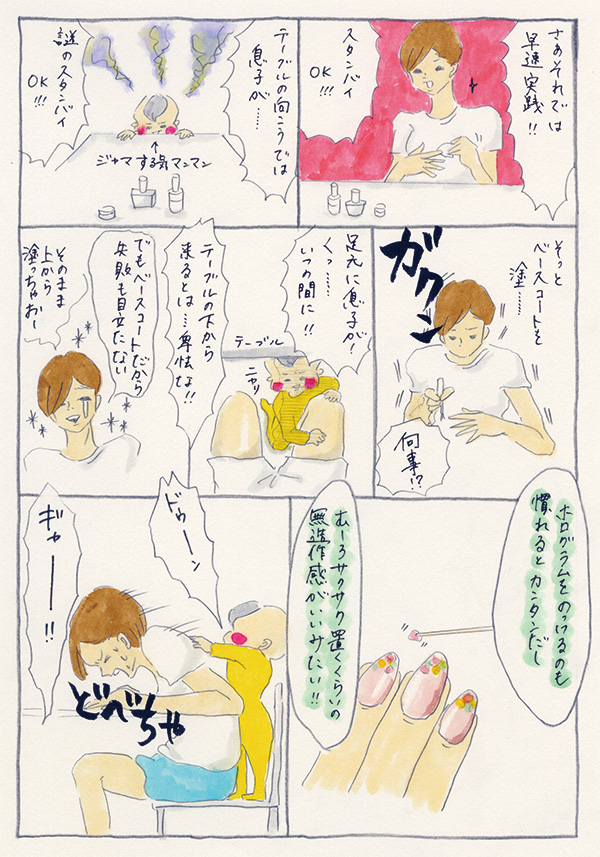 さぁそれでは
早速実践!!
スタンバイ
OK!!!
テーブルの向こうでは
息子が……
謎のスタンバイ
OK!!!
↑
ジャマする気マンマン
そっと
ベースコートを
塗……
ガクン
何事!?
足元に息子が!
くっ……
いつの間に!!
テーブル
ニヤリ
テーブルの下から
来るとは…卑怯な!!
でもベースコートだから
失敗も目立たない
そのまま
上から
塗っちゃおー
ホログラムをのっけるのも
慣れるとカンタンだし
むしろサクサク置くくらいの
無造作感がいいみたい!!
ドゥーン
どべちゃ
ギャーー!!